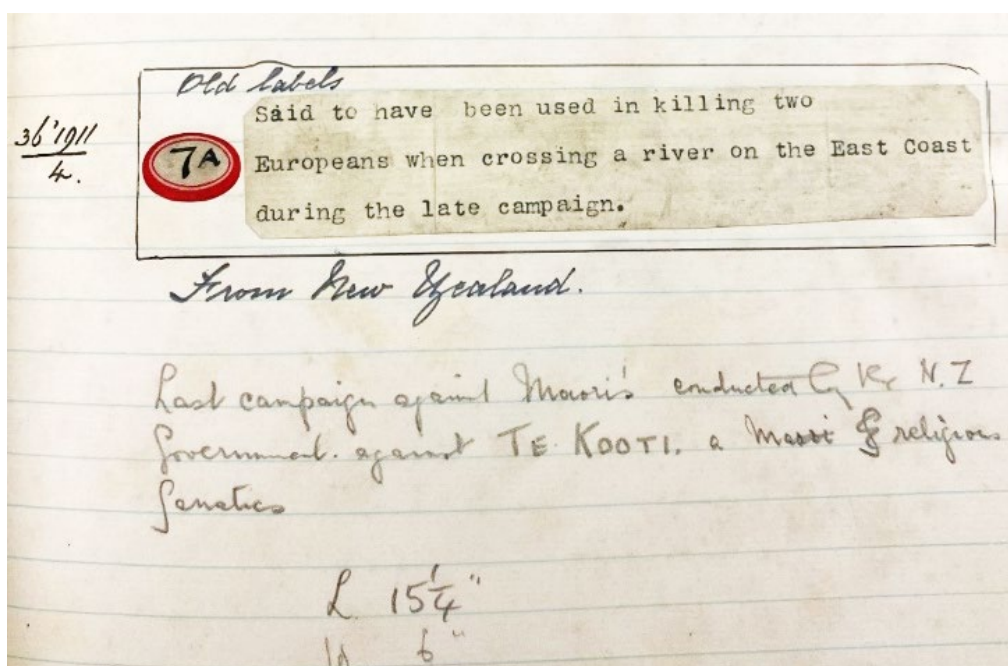 Old labels
36'1911
4.
7A
Said to have been used in killing two
Europeans when crossing a river on the East Coast
during the late campaign.
From New Zealand.
Last campaign against Maori's conducted by N.Z
Government. against TE KOOTI. a religious
fanatics
L 15 1/4"
6"